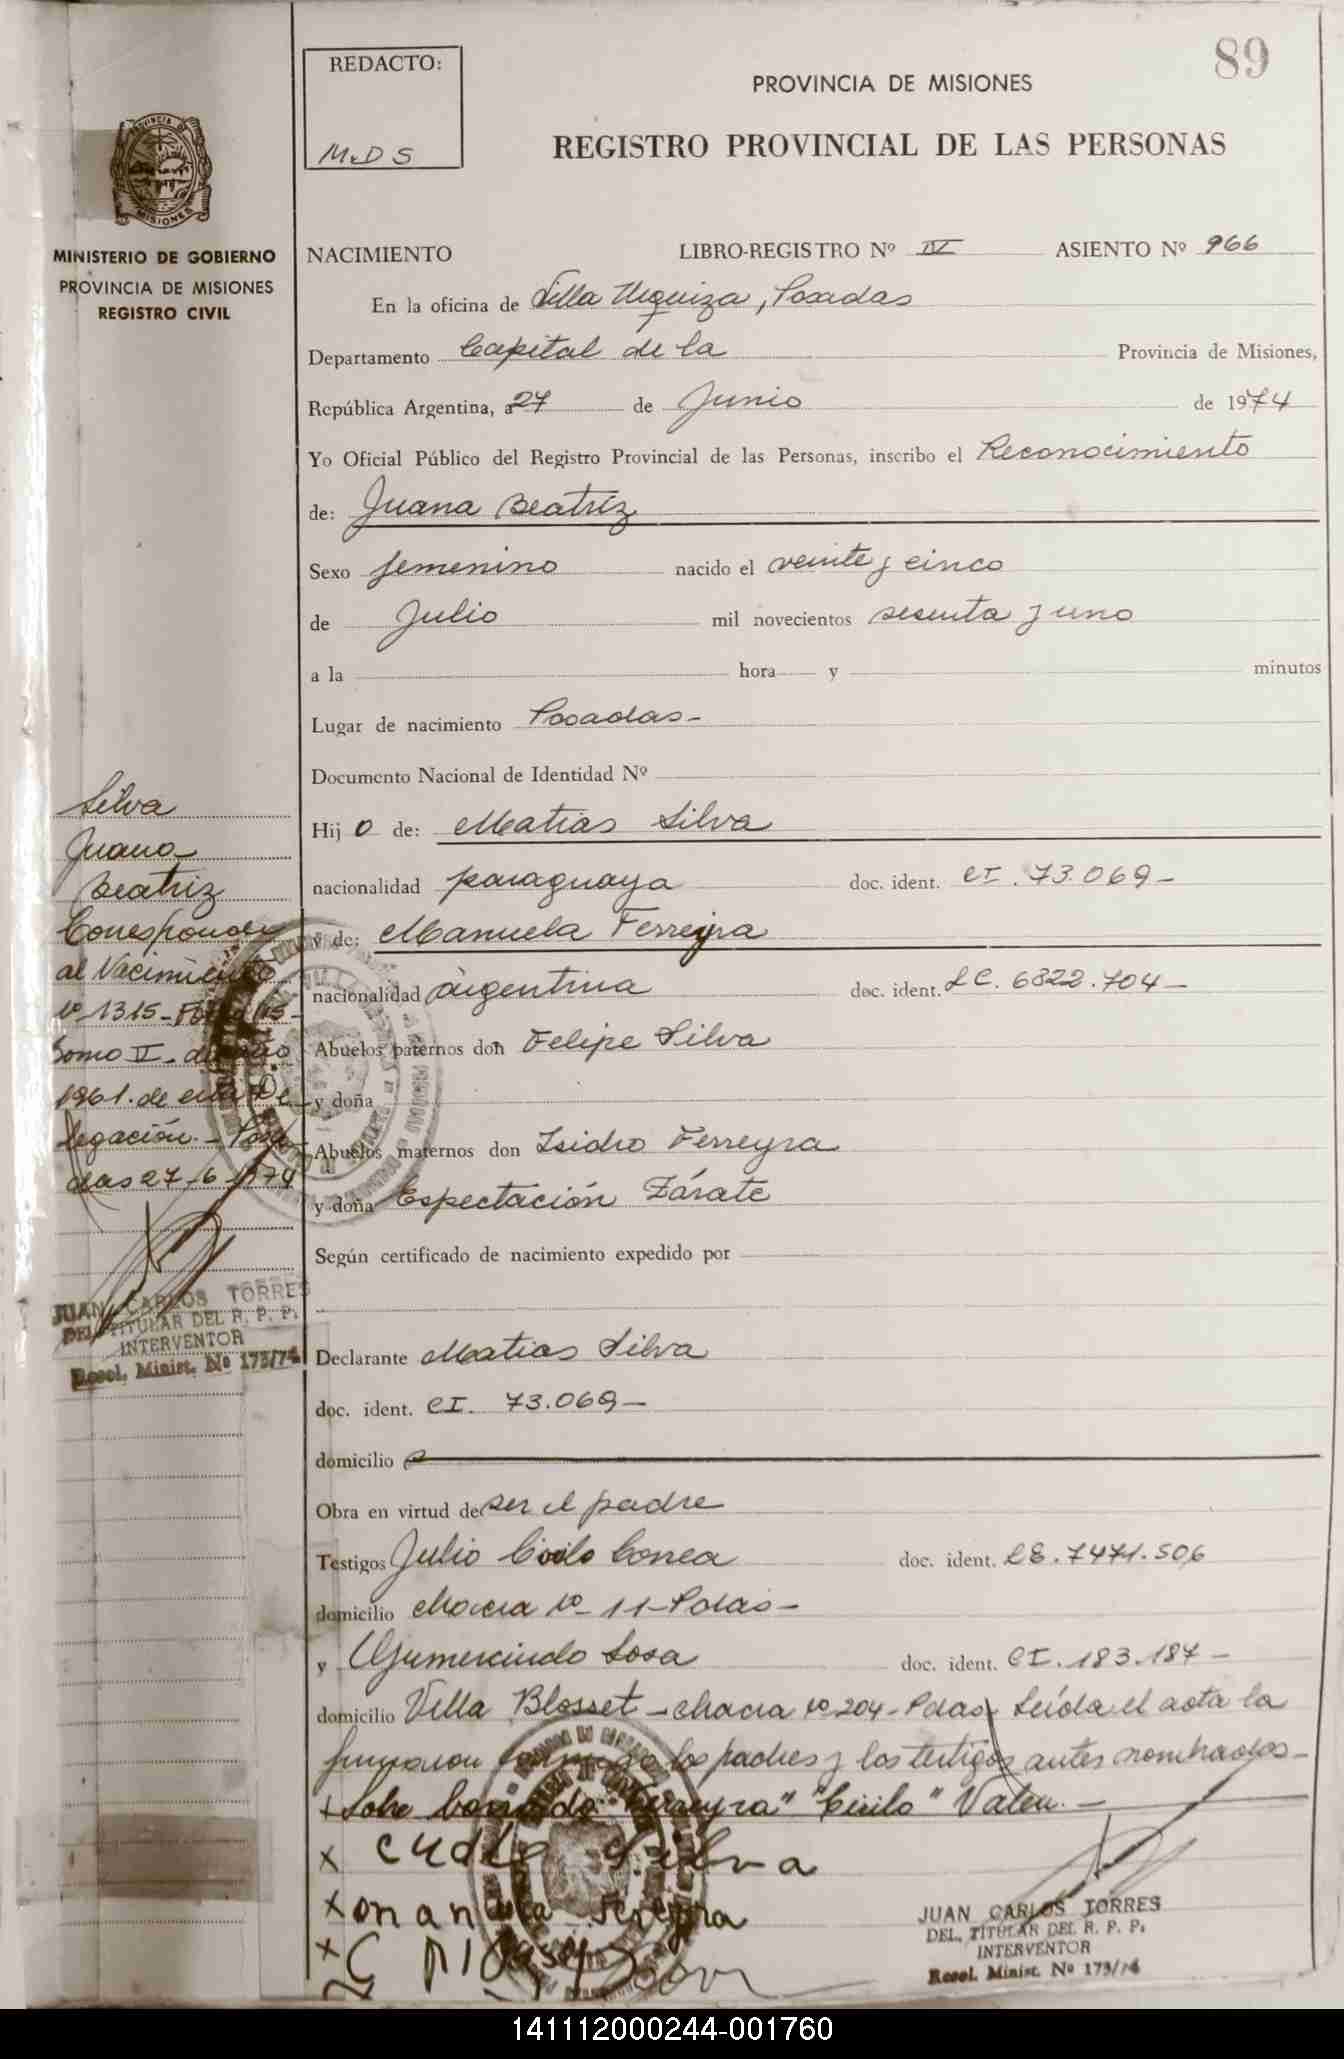 89
REDACTO:
M.D S
PROVINCIA DE MISIONES
REGISTRO PROVINCIAL DE LAS PERSONAS
PROVINCIA DE
MISIONES
MINISTERIO DE GOBIERNO
PROVINCIA DE MISIONES
REGISTRO CIVIL
NACIMIENTO LIBRO-REGISTRO Nº IV ASIENTO Nº 966
En la oficina de Villa Urquiza, Posadas
Departamento Capital de la Provincia de Misiones,
República Argentina, a 27 de Junio de 1974
Yo Oficial Público del Registro Provincial de las Personas, inscribo el Reconocimiento
de: Juana Beatriz
Sexo femenino nacido el veinte y cinco
de Julio mil novecientos sesenta y uno
a la hora y minutos
Lugar de nacimiento Posadas-
Documento Nacional de Identidad Nº
Hij o de: Matias Silva
nacionalidad paraguaya doc. ident. CI. 73.069-
y de: Manuela Ferreyra
nacionalidad argentina doc. ident. LC. 6822.704-
Abuelos paternos don Felipe Silva
y doña
Abuelos maternos don Isidro Ferreyra
y doña Espectación Zárate
Según certificado de nacimiento expedido por
Declarante Matias Silva
doc. ident. CI. 73.069-
domicilio
Obra en virtud de ser el padre
Testigos Julio Cirilo Correa doc. ident. LE. 7471.506
domicilio Chacra Nº- 11-Pdas-
y Gumercindo Sosa doc. ident. CI. 183.187-
domicilio Villa Blosset - chacra Nº 204-Pdas. Leída el acta la
firmaron conmigo los padres y los testigos antes nombrados-
Sobre borrado "Ferreyra" "Cirilo" Valen.-
Silva
Manuela Ferreyra
Silva
Juana
Beatriz
Corresponde
al Nacimiento
Nº 1315- Folio
Tomo II- del año
1961. de esta De
legación.- Posa
das 27-6-1974
JUAN CARLOS TORRES
DEL. TITULAR DEL R. P. P.
INTERVENTOR
Resol. Minist. Nº 173/74
JUAN CARLOS TORRES
DEL. TITULAR DEL R. P. P.
INTERVENTOR
Resol. Minist. Nº 173/74
141112000244-001760